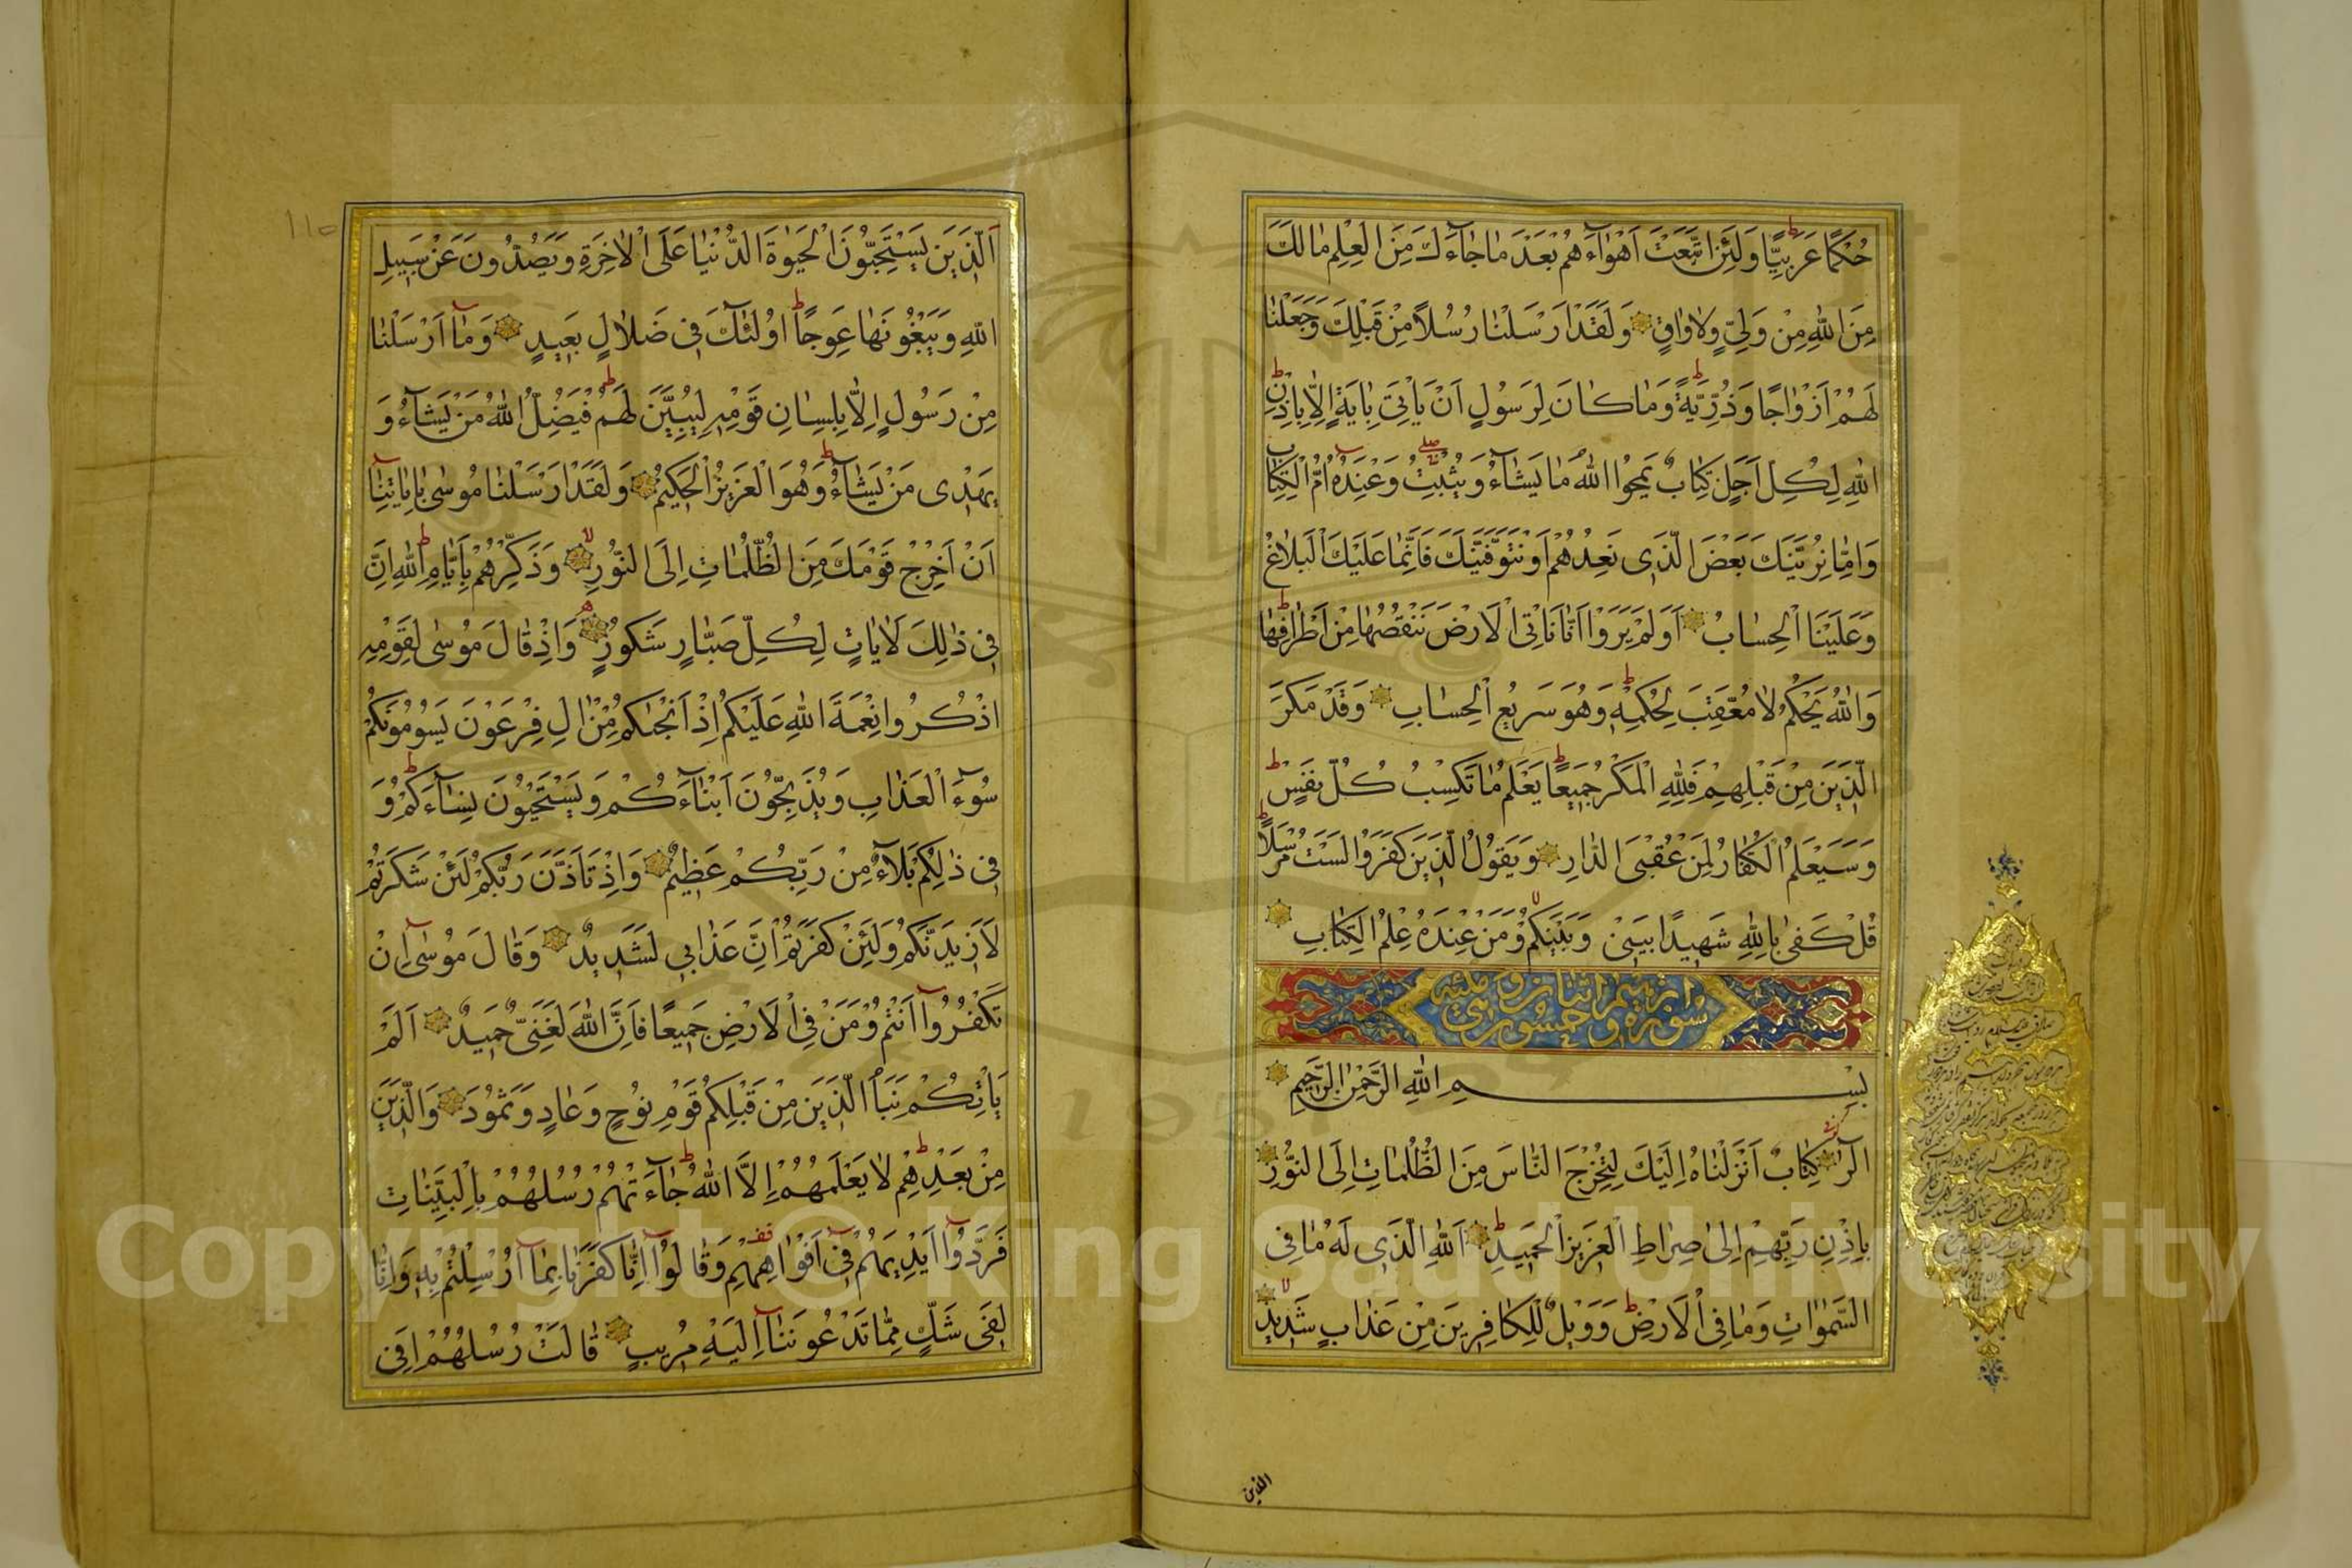 حُكْمًا عَرَبِيًّا وَلَئِنِ اتَّبَعْتَ اَهْوَآءَهُمْ بَعْدَ مَا جَآءَكَ مِنَ الْعِلْمِ مَا لَكَ
مِنَ اللّٰهِ مِنْ وَلِيٍّ وَلَا وَاقٍ وَلَقَدْ اَرْسَلْنَا رُسُلًا مِنْ قَبْلِكَ وَجَعَلْنَا
لَهُمْ اَزْوَاجًا وَذُرِّيَّةً وَمَا كَانَ لِرَسُولٍ اَنْ يَاْتِيَ بِاٰيَةٍ اِلَّا بِاِذْنِ
اللّٰهِ لِكُلِّ اَجَلٍ كِتَابٌ يَمْحُوا اللّٰهُ مَا يَشَآءُ وَيُثْبِتُ وَعِنْدَهُ اُمُّ الْكِتَابِ
وَاِمَّا نُرِيَنَّكَ بَعْضَ الَّذِي نَعِدُهُمْ اَوْ نَتَوَفَّيَنَّكَ فَاِنَّمَا عَلَيْكَ الْبَلَاغُ
وَعَلَيْنَا الْحِسَابُ اَوَلَمْ يَرَوْا اَنَّا نَاْتِي الْاَرْضَ نَنْقُصُهَا مِنْ اَطْرَافِهَا
وَاللّٰهُ يَحْكُمُ لَا مُعَقِّبَ لِحُكْمِهِ وَهُوَ سَرِيعُ الْحِسَابِ وَقَدْ مَكَرَ
الَّذِينَ مِنْ قَبْلِهِمْ فَلِلّٰهِ الْمَكْرُ جَمِيعًا يَعْلَمُ مَا تَكْسِبُ كُلُّ نَفْسٍ
وَسَيَعْلَمُ الْكُفَّارُ لِمَنْ عُقْبَى الدَّارِ وَيَقُولُ الَّذِينَ كَفَرُوا لَسْتَ مُرْسَلًا
قُلْ كَفٰى بِاللّٰهِ شَهِيدًا بَيْنِي وَبَيْنَكُمْ وَمَنْ عِنْدَهُ عِلْمُ الْكِتَابِ
بِسْمِ اللّٰهِ الرَّحْمٰنِ الرَّحِيمِ
الٓرٰ كِتَابٌ اَنْزَلْنَاهُ اِلَيْكَ لِتُخْرِجَ النَّاسَ مِنَ الظُّلُمَاتِ اِلَى النُّورِ
بِاِذْنِ رَبِّهِمْ اِلٰى صِرَاطِ الْعَزِيزِ الْحَمِيدِ اَللّٰهِ الَّذِي لَهُ مَا فِي
السَّمٰوَاتِ وَمَا فِي الْاَرْضِ وَوَيْلٌ لِلْكَافِرِينَ مِنْ عَذَابٍ شَدِيدٍ
الذين
١١٥
اَلَّذِينَ يَسْتَحِبُّونَ الْحَيٰوةَ الدُّنْيَا عَلَى الْاٰخِرَةِ وَيَصُدُّونَ عَنْ سَبِيلِ
اللّٰهِ وَيَبْغُونَهَا عِوَجًا اُولٰئِكَ فِي ضَلَالٍ بَعِيدٍ وَمَآ اَرْسَلْنَا
مِنْ رَسُولٍ اِلَّا بِلِسَانِ قَوْمِهِ لِيُبَيِّنَ لَهُمْ فَيُضِلُّ اللّٰهُ مَنْ يَشَآءُ وَ
يَهْدِي مَنْ يَشَآءُ وَهُوَ الْعَزِيزُ الْحَكِيمُ وَلَقَدْ اَرْسَلْنَا مُوسٰى بِاٰيَاتِنَآ
اَنْ اَخْرِجْ قَوْمَكَ مِنَ الظُّلُمَاتِ اِلَى النُّورِ وَذَكِّرْهُمْ بِاَيَّامِ اللّٰهِ اِنَّ
فِي ذٰلِكَ لَاٰيَاتٍ لِكُلِّ صَبَّارٍ شَكُورٍ وَاِذْ قَالَ مُوسٰى لِقَوْمِهِ
اذْكُرُوا نِعْمَةَ اللّٰهِ عَلَيْكُمْ اِذْ اَنْجٰيكُمْ مِنْ اٰلِ فِرْعَوْنَ يَسُومُونَكُمْ
سُوٓءَ الْعَذَابِ وَيُذَبِّحُونَ اَبْنَآءَكُمْ وَيَسْتَحْيُونَ نِسَآءَكُمْ وَ
فِي ذٰلِكُمْ بَلَآءٌ مِنْ رَبِّكُمْ عَظِيمٌ وَاِذْ تَاَذَّنَ رَبُّكُمْ لَئِنْ شَكَرْتُمْ
لَاَزِيدَنَّكُمْ وَلَئِنْ كَفَرْتُمْ اِنَّ عَذَابِي لَشَدِيدٌ وَقَالَ مُوسٰى اِنْ
تَكْفُرُوآ اَنْتُمْ وَمَنْ فِي الْاَرْضِ جَمِيعًا فَاِنَّ اللّٰهَ لَغَنِيٌّ حَمِيدٌ اَلَمْ
يَاْتِكُمْ نَبَاُ الَّذِينَ مِنْ قَبْلِكُمْ قَوْمِ نُوحٍ وَعَادٍ وَثَمُودَ وَالَّذِينَ
مِنْ بَعْدِهِمْ لَا يَعْلَمُهُمْ اِلَّا اللّٰهُ جَآءَتْهُمْ رُسُلُهُمْ بِالْبَيِّنَاتِ
فَرَدُّوآ اَيْدِيَهُمْ فِي اَفْوَاهِهِمْ وَقَالُوآ اِنَّا كَفَرْنَا بِمَآ اُرْسِلْتُمْ بِهِ وَاِنَّا
لَفِي شَكٍّ مِمَّا تَدْعُونَنَآ اِلَيْهِ مُرِيبٍ قَالَتْ رُسُلُهُمْ اَفِي
Copyright © King Saud University
1957